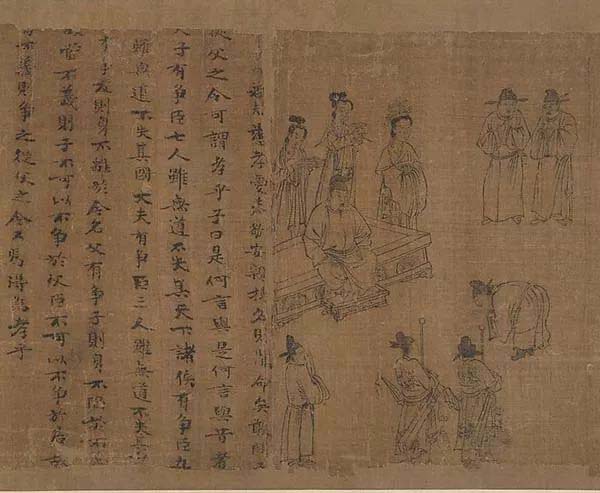 若夫慈孝愛恭敬安親揚名則聞命矣敢問
從父之令可謂孝乎子曰是何言與是何言與昔者
天子有爭臣七人雖無道不失其天下諸侯有爭臣五
雖無道不失其國大夫有爭臣三人雖無道不失其
爭友則身不離於令名父有爭子則身不陷於不
故當不義則子不可以不爭於父臣不可以不爭於君故
當不義則爭之從父之令又焉得為孝乎